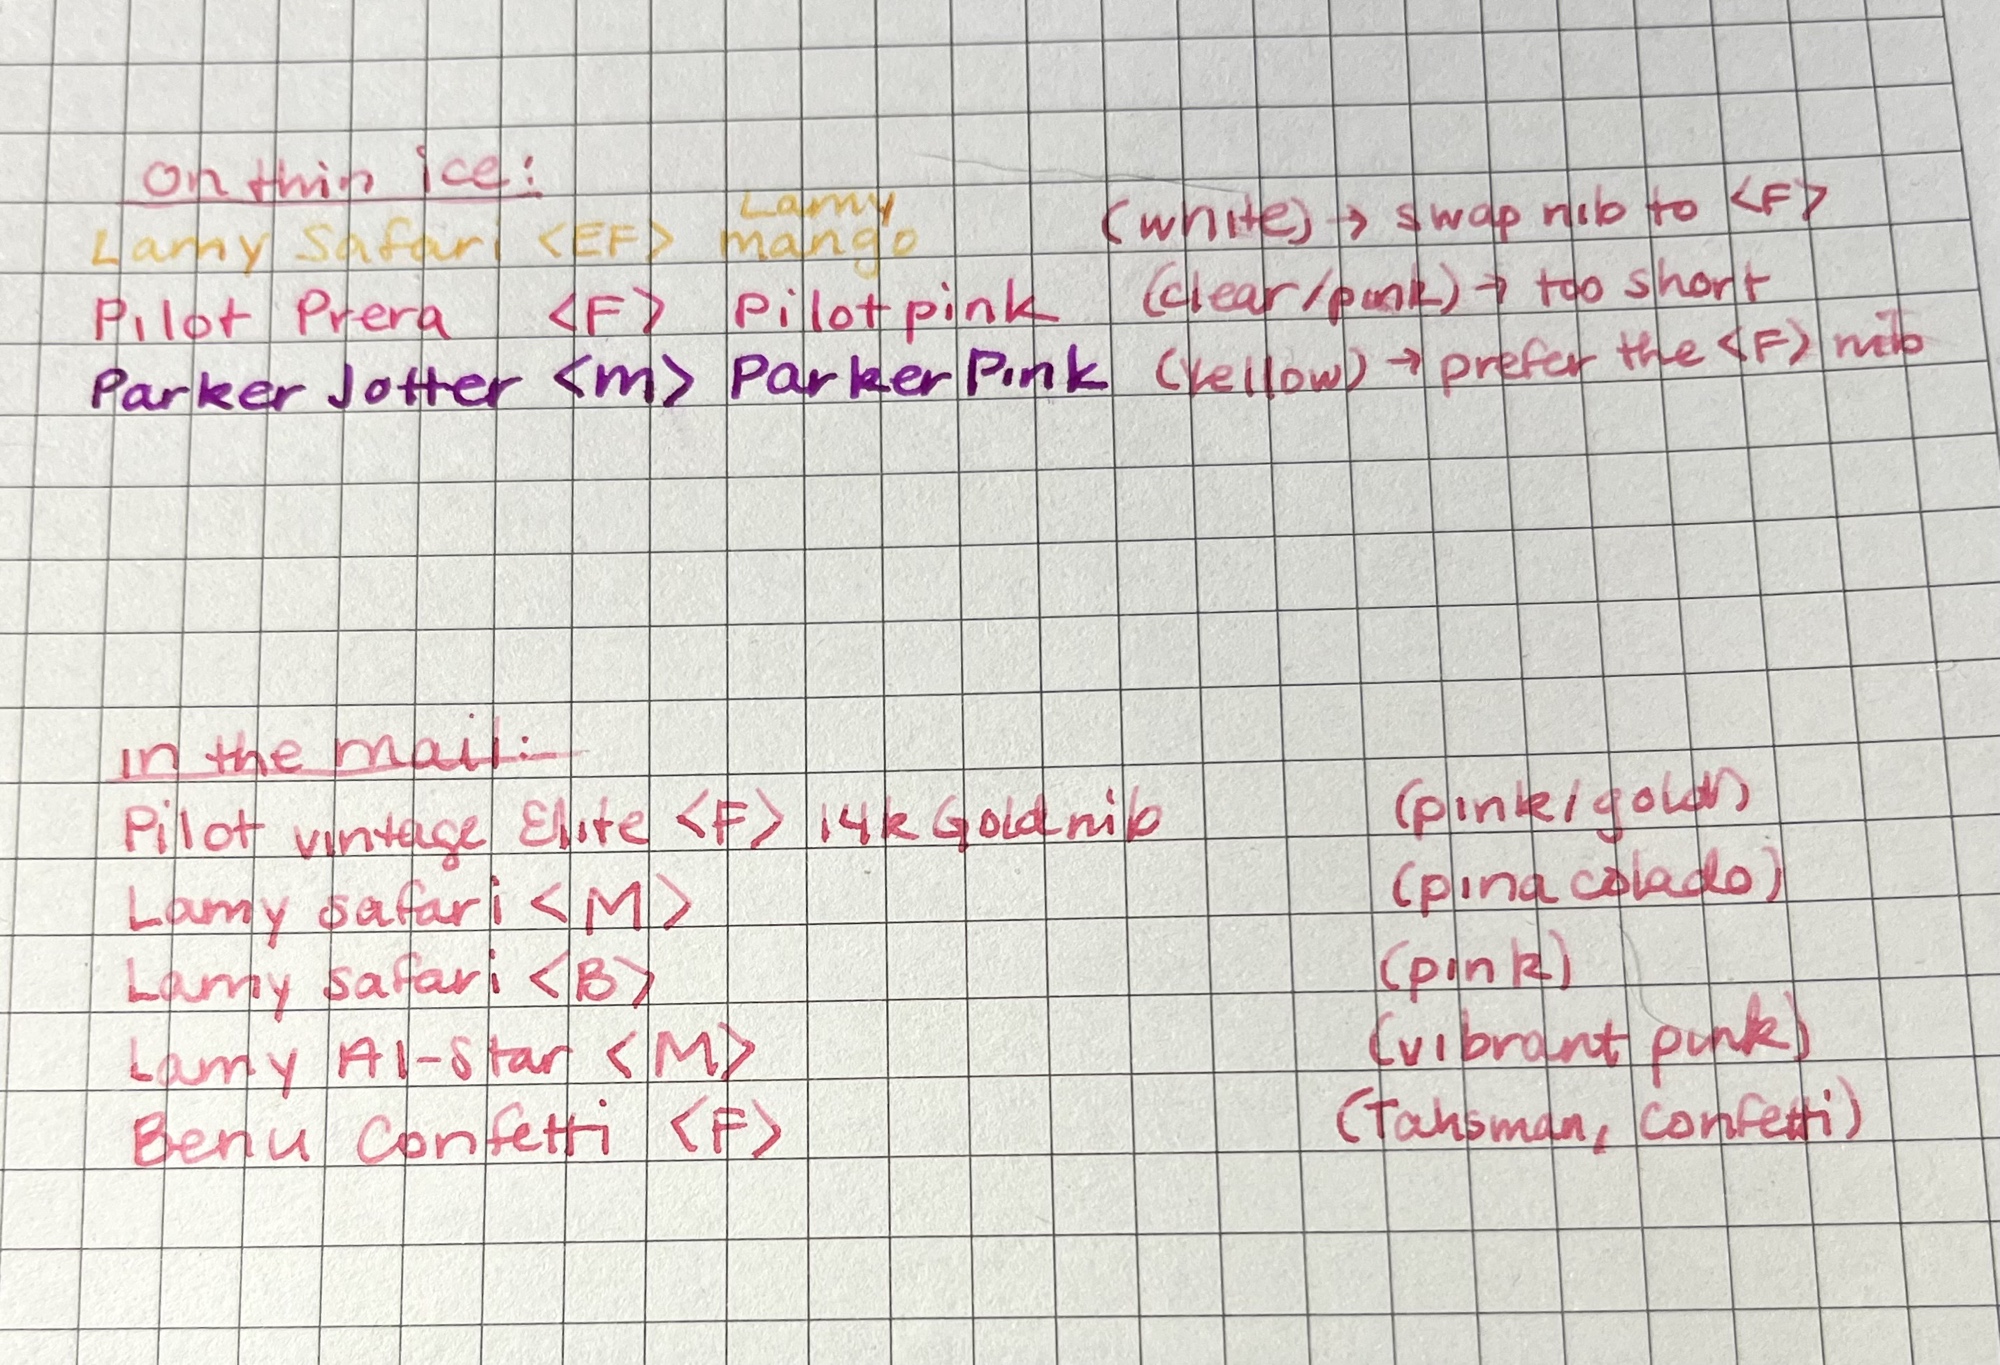 on thin ice:
Lamy Safari <EF> Lamy mango (white) → swap nib to <F>
Pilot Prera <F> Pilot pink (clear/pink) → too short
Parker Jotter <m> Parker Pink (yellow) → prefer the <F> nib
in the mail:
Pilot vintage Elite <F> 14k Gold nib (pink/gold)
Lamy safari <M> (pina colado)
Lamy safari <B> (pink)
Lamy Al-Star <M> (vibrant pink)
Benu Confetti <F> (Talisman, confetti)